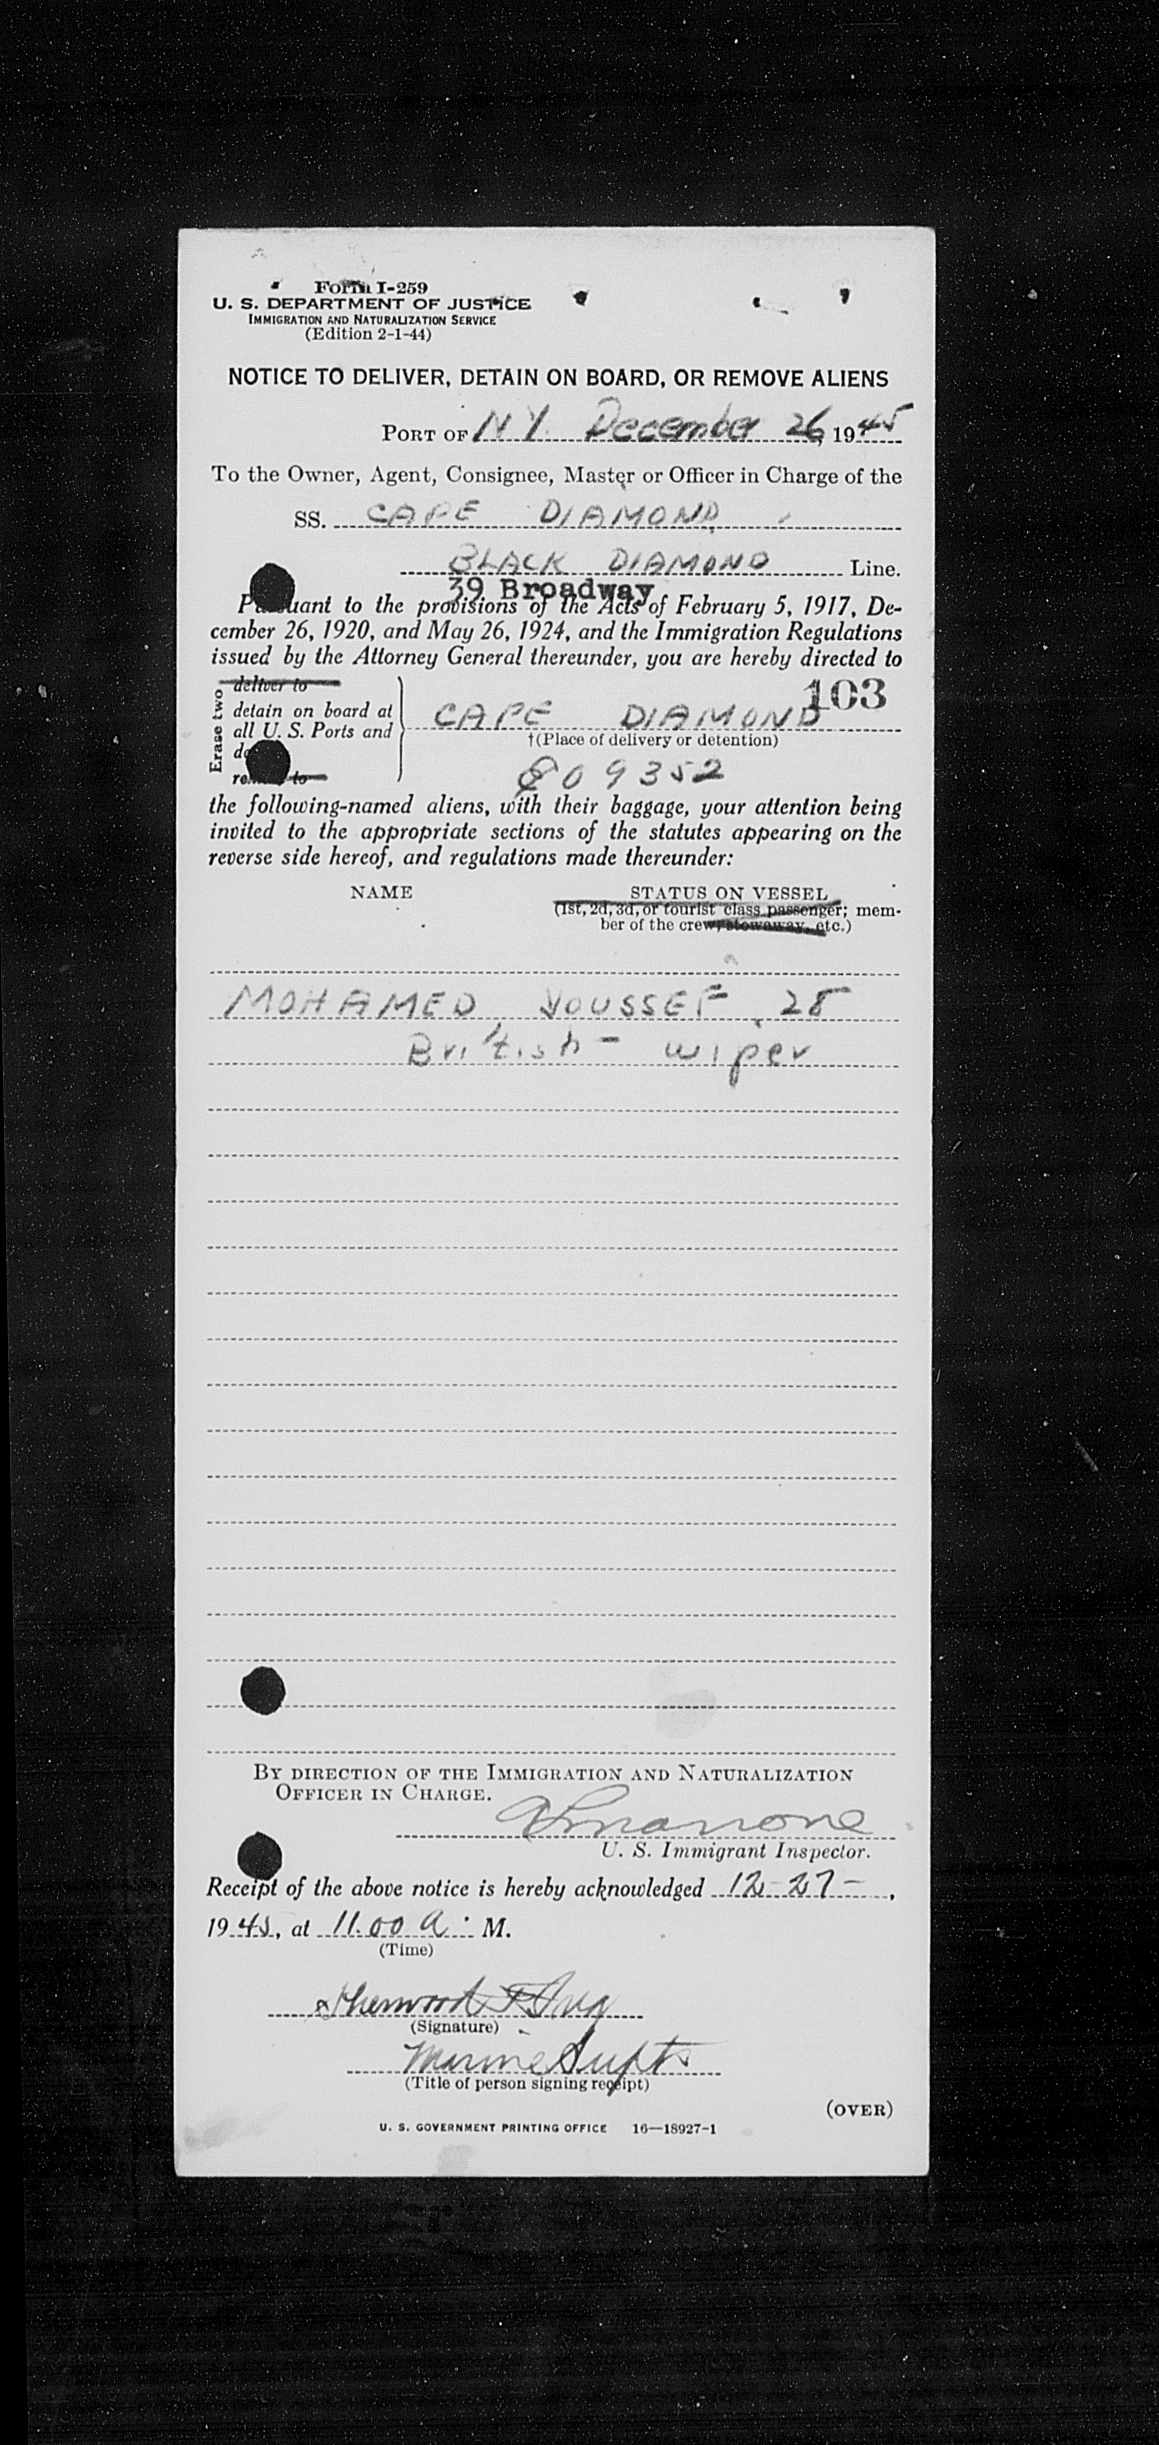 Form I-259
U. S. DEPARTMENT OF JUSTICE
IMMIGRATION AND NATURALIZATION SERVICE
(Edition 2-1-44)
NOTICE TO DELIVER, DETAIN ON BOARD, OR REMOVE ALIENS
PORT OF N Y. December 26, 1945
To the Owner, Agent, Consignee, Master or Officer in Charge of the
SS. CAPE DIAMOND
BLACK DIAMOND Line.
39 Broadway
Pursuant to the provisions of the Acts of February 5, 1917, De-
cember 26, 1920, and May 26, 1924, and the Immigration Regulations
issued by the Attorney General thereunder, you are hereby directed to
103
Erase two
deliver to
detain on board at
all U. S. Ports and
CAPE DIAMOND
†(Place of delivery or detention)
to
809352
the following-named aliens, with their baggage, your attention being
invited to the appropriate sections of the statutes appearing on the
reverse side hereof, and regulations made thereunder:
NAME STATUS ON VESSEL
(1st, 2d, 3d, or tourist class passenger; mem-
ber of the crew, stowaway, etc.)
MOHAMED YOUSSEF 28
British - wiper
BY DIRECTION OF THE IMMIGRATION AND NATURALIZATION
OFFICER IN CHARGE.
U. S. Immigrant Inspector.
Receipt of the above notice is hereby acknowledged 12-27-,
1945, at 11.00 A. M.
(Time)
Sherwood
(Signature)
Marine Supt
(Title of person signing receipt)
(OVER)
U. S. GOVERNMENT PRINTING OFFICE 16—18927-1